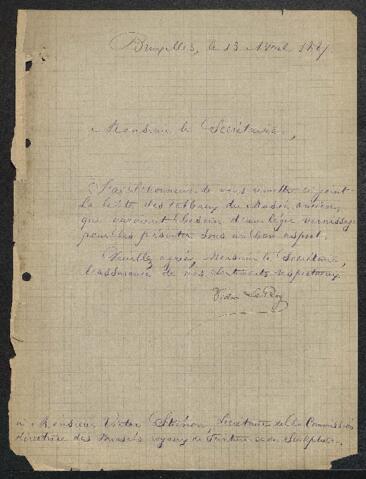 Bruxelles, le 13 Avril
Monsieur le Secrétaire,
J'ai l'honneur de vous remettre ci-joint
la liste des tableaux du Musée ancien,
que auraient besoin d'un léger vernissage
pour les présenter sous un bon aspect.
Veuillez agréer, Monsieur le Secrétaire,
l'assurance de mes sentiments respectueux
Victor Le Roy
à Monsieur Victor Stiénon, Secrétaire de la Commission
directrice des Musées royaux de Peinture et de Sculpture.